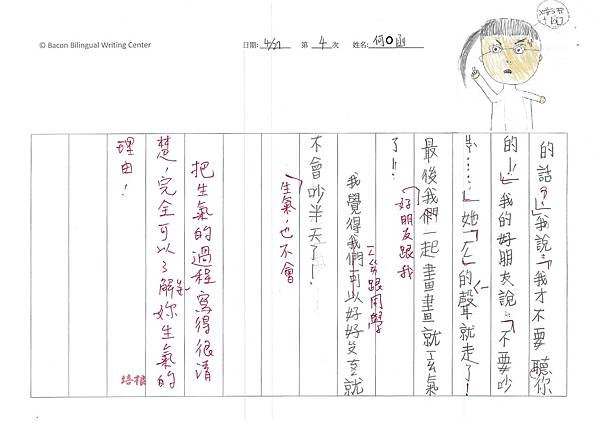 © Bacon Bilingual Writing Center
日期: 4/27 第 4 次 姓名: 何〇函
的話?」我說:「我才不要聽你
的!!」我的好朋友說:「不要吵
ㄌㄜ……」她「ㄥ」的聲就走了!
最後我們一起畫畫就ㄠ氣
好朋友跟我
了!!
ㄍㄣ跟同學
我覺得我們可以好好ㄐ就
不會吵半天了!
生氣,也不會
把生氣的過程寫得很清
楚,完全可以了解妳生氣的
理由!
培根